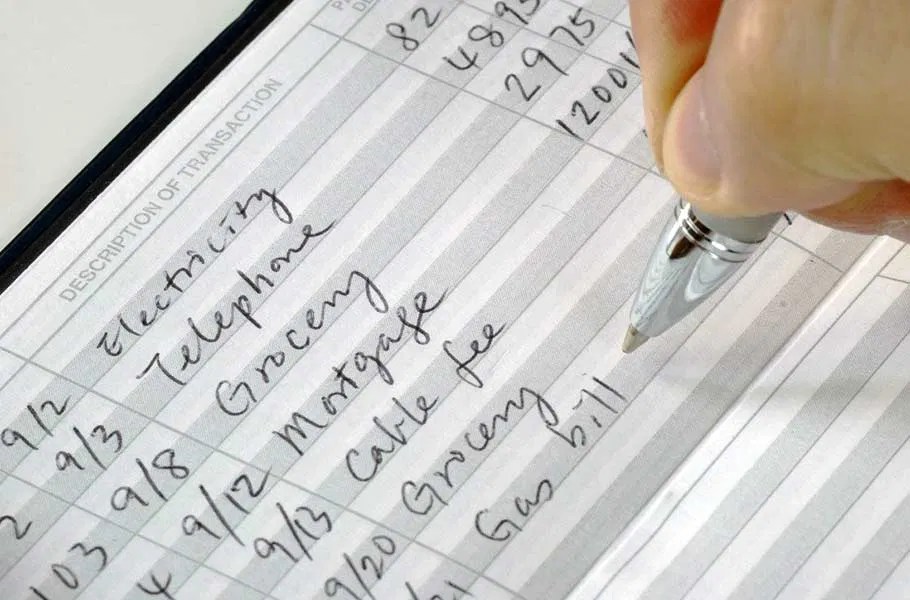 DESCRIPTION OF TRANSACTION
9/2 Electricity 82
2 9/3 Telephone 48 95
103 9/8 Grocery 29 75
4 9/12 Mortgage 1200
9/13 Cable fee
9/20 Grocery
Gas bill